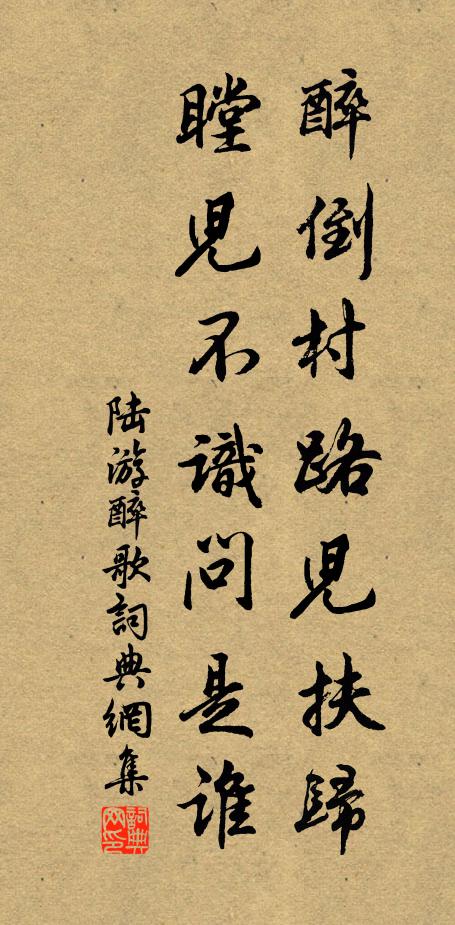 醉倒村路兒扶歸
瞠見不識問是誰
陆游醉歌詞典網集
詞典网印